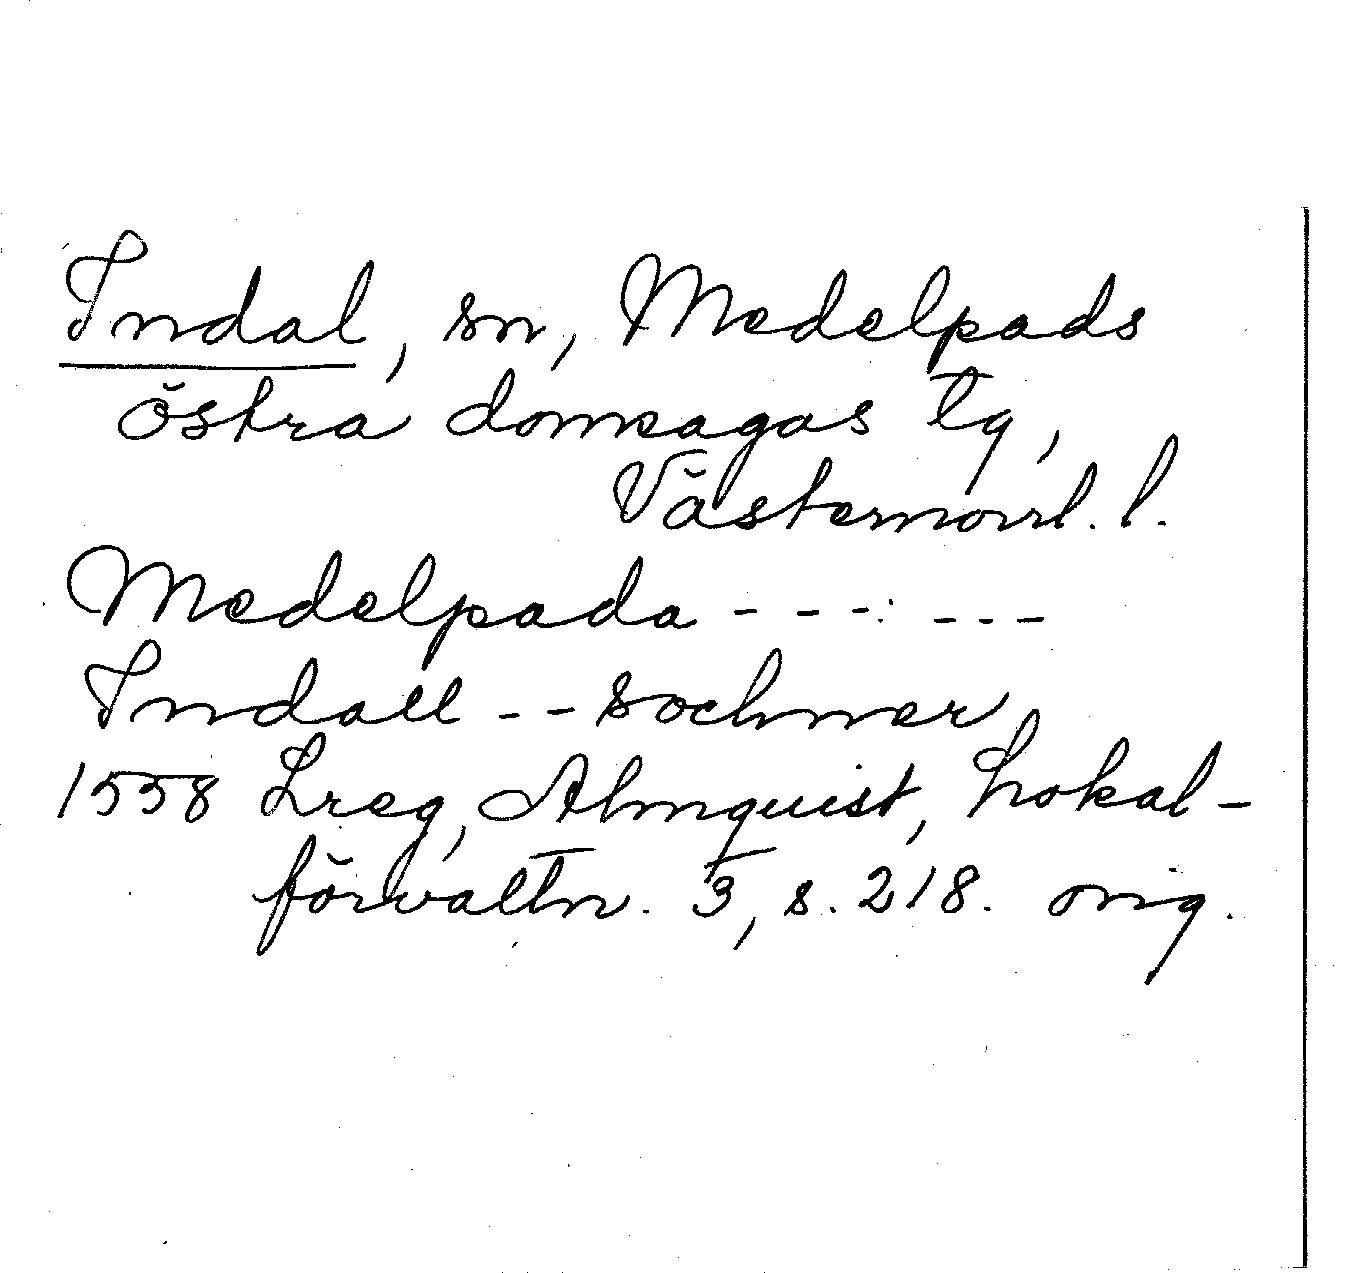 Indal, sn, Medelpads
östra domsagas tg,
Västernorrl. l.
Medelpada - - - - - -
Indall - - sochner
1558 Lreg, Almquist, Lokal-
förvaltn. 3, s. 218. orig.